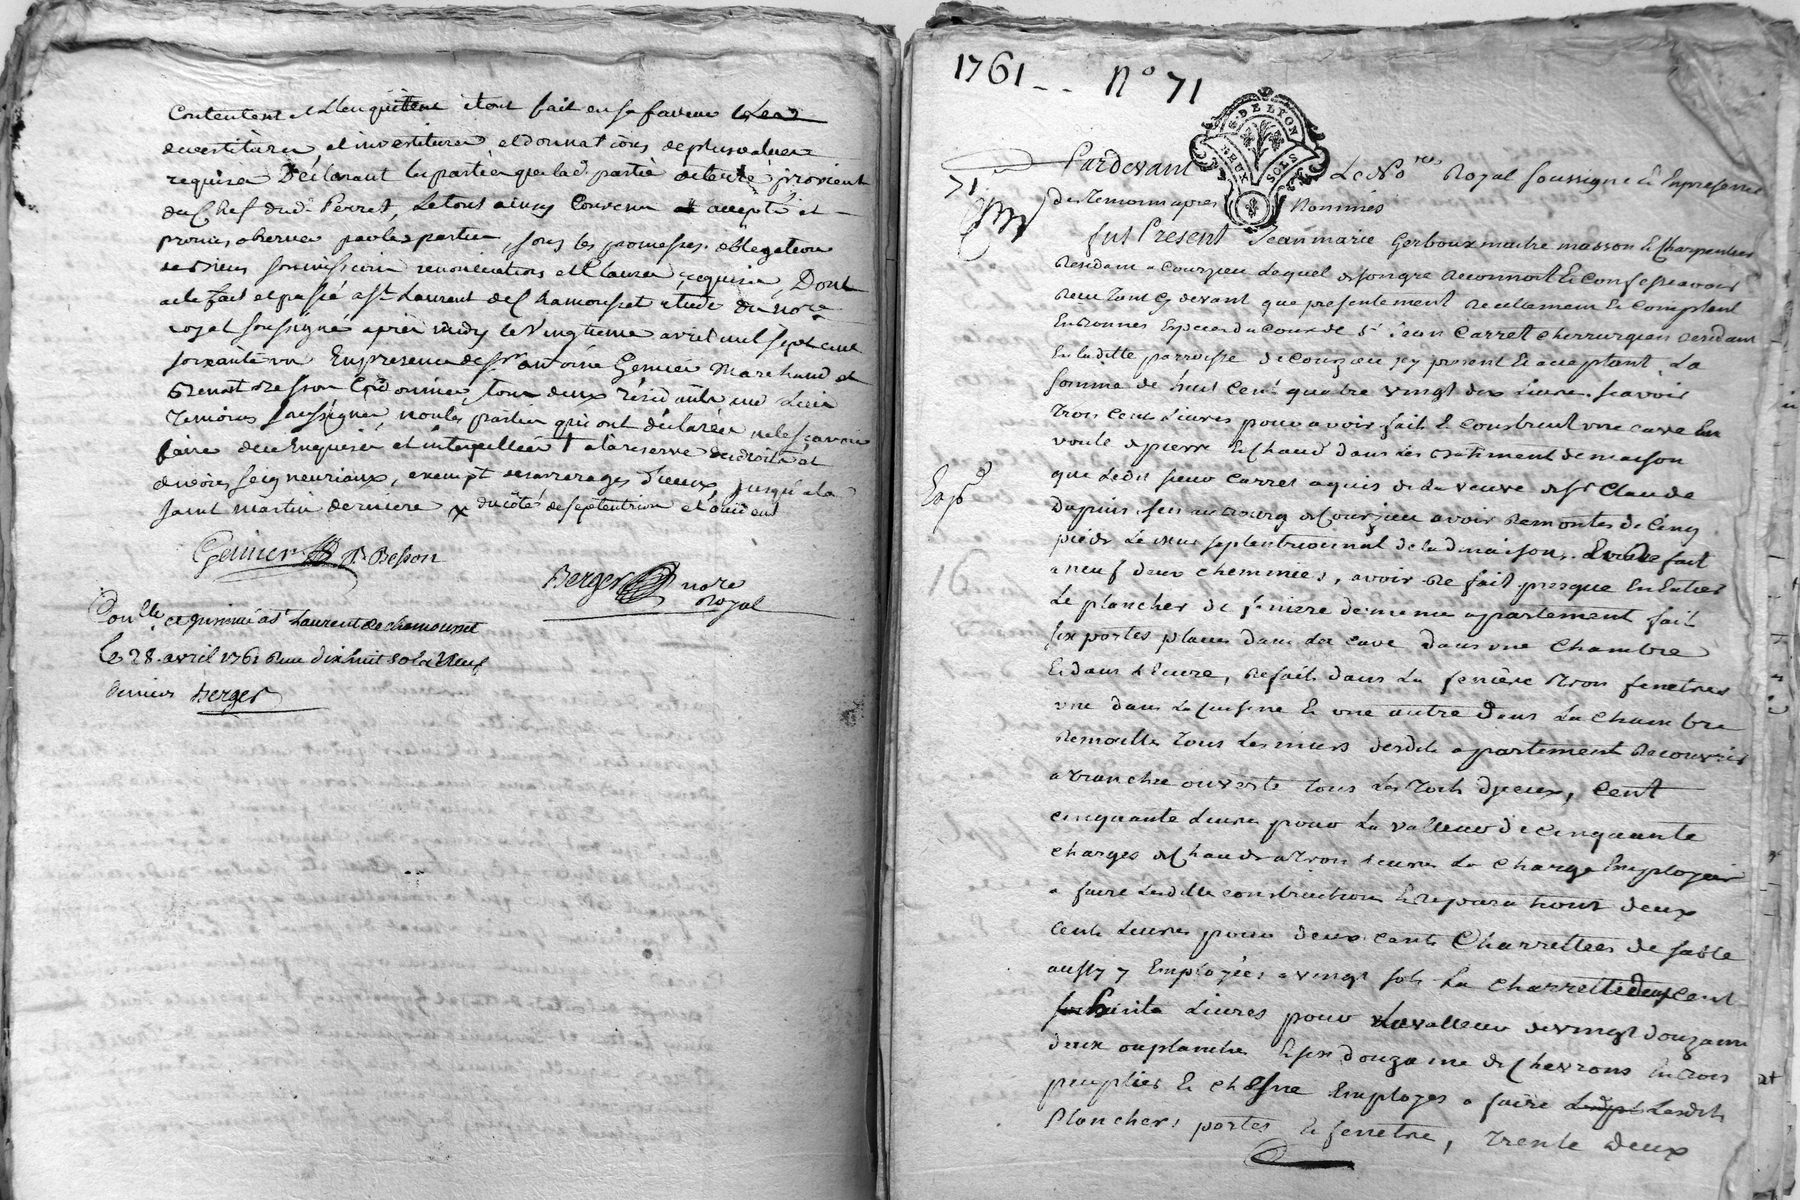 Contentent et l'en quittent et ont fait en sa faveur Les
devestitures et investitures et donnations de plus value
requises Déclarant les parties que la de partie de terre provient
du Chef dud. Perret, Le tout ainsy Convenu accepté et
promis observer par les parties, sous les promesses obligations
de biens soumissions renonciations et Clauses requises, Dont
acte fait et passé a St. Laurent de Chamousset etude du nore
royal soussigné après midy le vingtieme avril mil sept cent
soixante un En presence de sr antoine Genier Marchand et
Benoit Besson Cordonnier, tous deux résidants aud. Lieu
Temoins soussignés, non les parties qui ont déclarés ne le sçavoir
faire de ce Enquises et interpellées † a la reserve des droits et
devoirs seigneuriaux, exempt des arrerages d'ieux jusqu'a la
saint martin derniere x du côté de septentrion et orient
Genier B. Besson
Berger nore
Royal
Con.lle et insinué a St Laurent de chamousset
Le 28. avril 1761 Reçu dix huit sols neuf
deniers Berger
1761 -- No 71
DE LYON
DEUX SOLS
Pardevant Le No.re Royal soussigné & En presence
71
des Temoins apres Nommés
fut Present Jean marie Gerboux maitre masson & Charpentier
Residant a Courzieu Lequel de son gré Reconnoit & Confesse avoir
Reçu Tant Cy devant que presentement Reellement & Comptant
En bonnes Especes du Cour de Sr Jean Carret Chirurgien Residant
En laditte parroisse de Courzieu icy present & acceptant, La
somme de huit Cent quatre vingt dix Livres. scavoir
Trois Cent Livres pour avoir fait & construit une cave En
voute de pierre & Chaud dans Les Batiment de maison
que Ledit sieur Carret aquis de la veuve de Sr Claude
Dupuis, sis au bourg de Courzieu avoir Remontés de Cinq
pieds Le mur septentrionnal de lad maison, fait
a neuf deux cheminées, avoir Re fait presque En Entier
Le plancher de feniere de meme apartement fait
six portes placees dans La Cave dans une Chambre
& dans L'Ecurie, Refaits dans La feniere Trois fenetres
une dans La Cuisine & une autre dans La Chambre
Remaillé Tous Les murs desdits apartement Recouvris
a tranche ouverte Tous Les Toits dyceux, Cent
cinquante Livres pour La valleur de cinquante
charges de Chaud a Trois Livres La Charge Employées
a faire Lesdittes constructions & Reparations deux
Cents Livres pour deux cents Charrettées de sable
aussy y Employées a vingt sols La Charrettée deux Cent
huit Livres pour La valleur de vingt douzaine
deux ou planches & six douzaine de Chevrons En bois
peuplier & chesne Employes a faire Lesdits
Planchers portes & fenetre, Trente deux